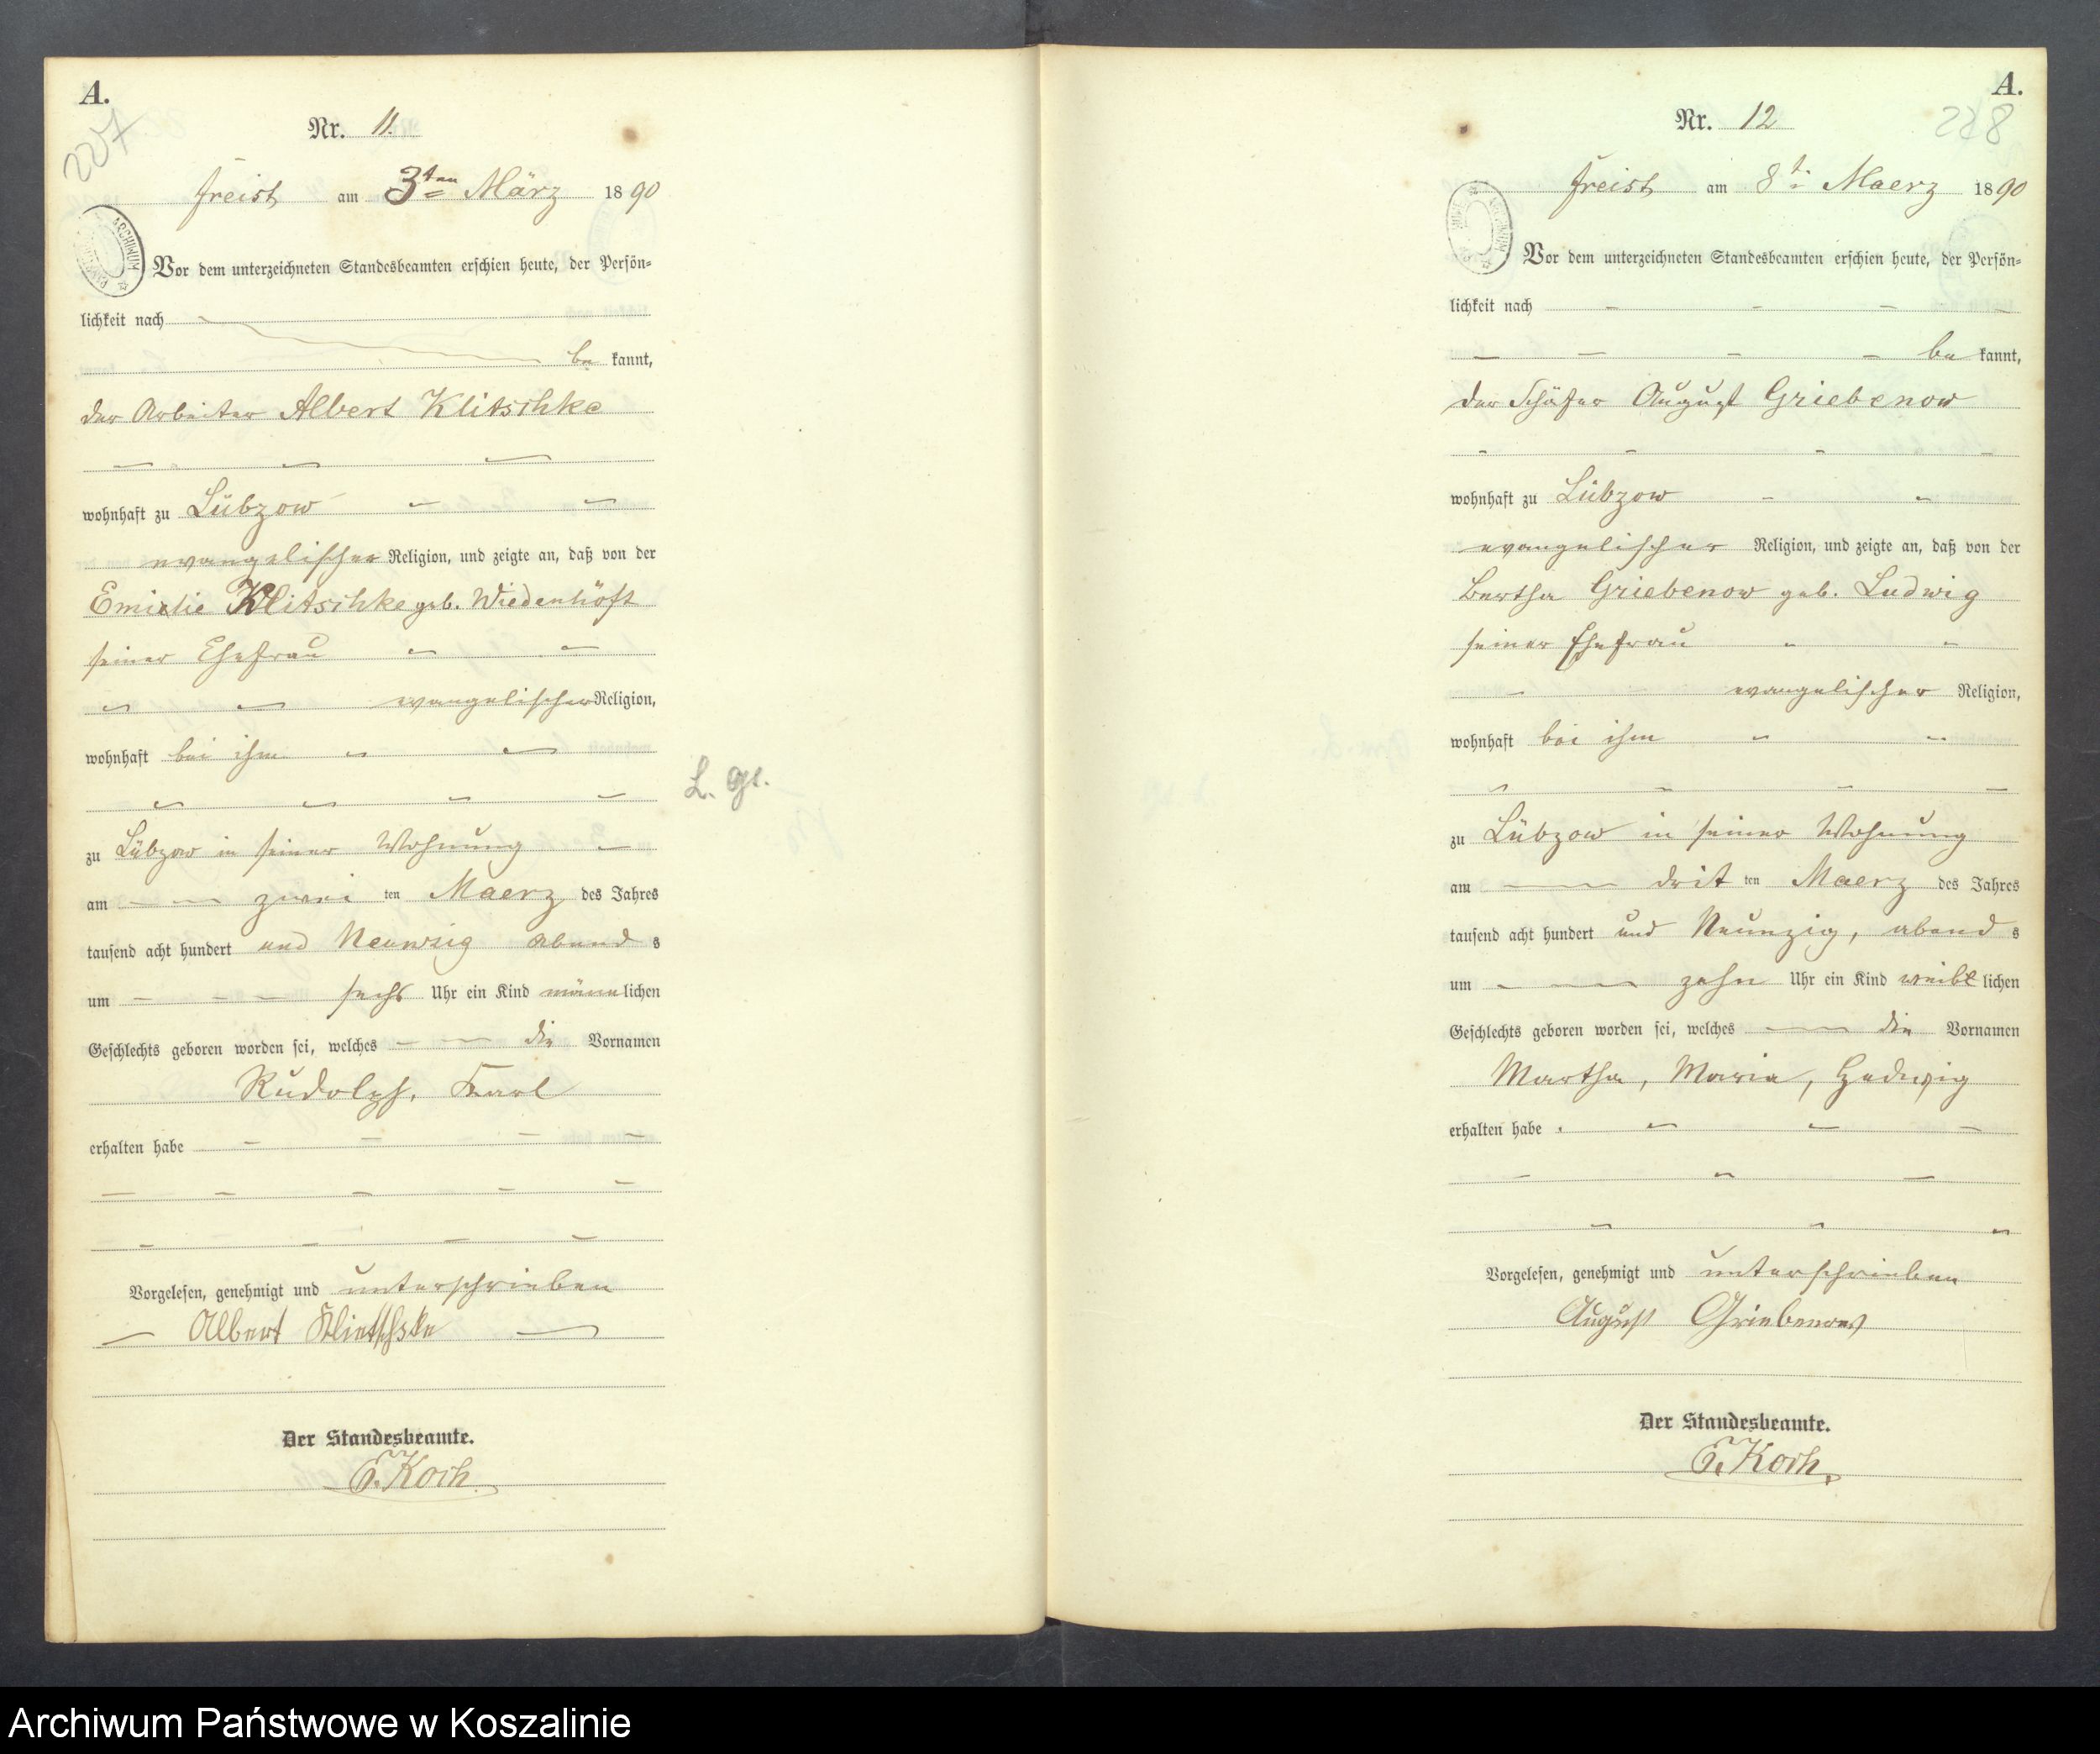 A.
227
Nr. 11.
Freist am 3ten März 1890
Vor dem unterzeichneten Standesbeamten erschien heute, der Persön-
lichkeit nach
be kannt,
der Arbeiter Albert Klitschke
wohnhaft zu Lübzow
evangelischer Religion, und zeigte an, daß von der
Emilie Klitschke geb. Wiedenhöft
seiner Ehefrau
evangelischer Religion,
wohnhaft bei ihm
zu Lübzow in seiner Wohnung
am zwei ten Maerz des Jahres
tausend acht hundert und Neunzig abend s
um sechs Uhr ein Kind männlichen
Geschlechts geboren worden sei, welches die Vornamen
Rudolph, Karl
erhalten habe
Vorgelesen, genehmigt und unterschrieben
Albert Klietschke
Der Standesbeamte.
E. Koch.
L. gl.
A.
228
Nr. 12
Freist am 8t Maerz 1890
ARCHIWUM
Vor dem unterzeichneten Standesbeamten erschien heute, der Persön-
lichkeit nach
be kannt,
der Schäfer August Griebenow
wohnhaft zu Lübzow
evangelischer Religion, und zeigte an, daß von der
Bertha Griebenow geb. Ludwig
seiner Ehefrau
evangelischer Religion,
wohnhaft bei ihm
zu Lübzow in seiner Wohnung
am drit ten Maerz des Jahres
tausend acht hundert und Neunzig, abend s
um zehn Uhr ein Kind weiblichen
Geschlechts geboren worden sei, welches die Vornamen
Martha, Maria, Hedwig
erhalten habe.
Vorgelesen, genehmigt und unterschrieben
August Griebenow
Der Standesbeamte.
E. Koch.
Archiwum Państwowe w Koszalinie